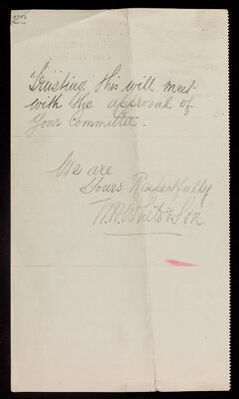 Trusting this will meet
with the approval of
Your Committee.
We are
Yours Respectfully
W.H. White & Son